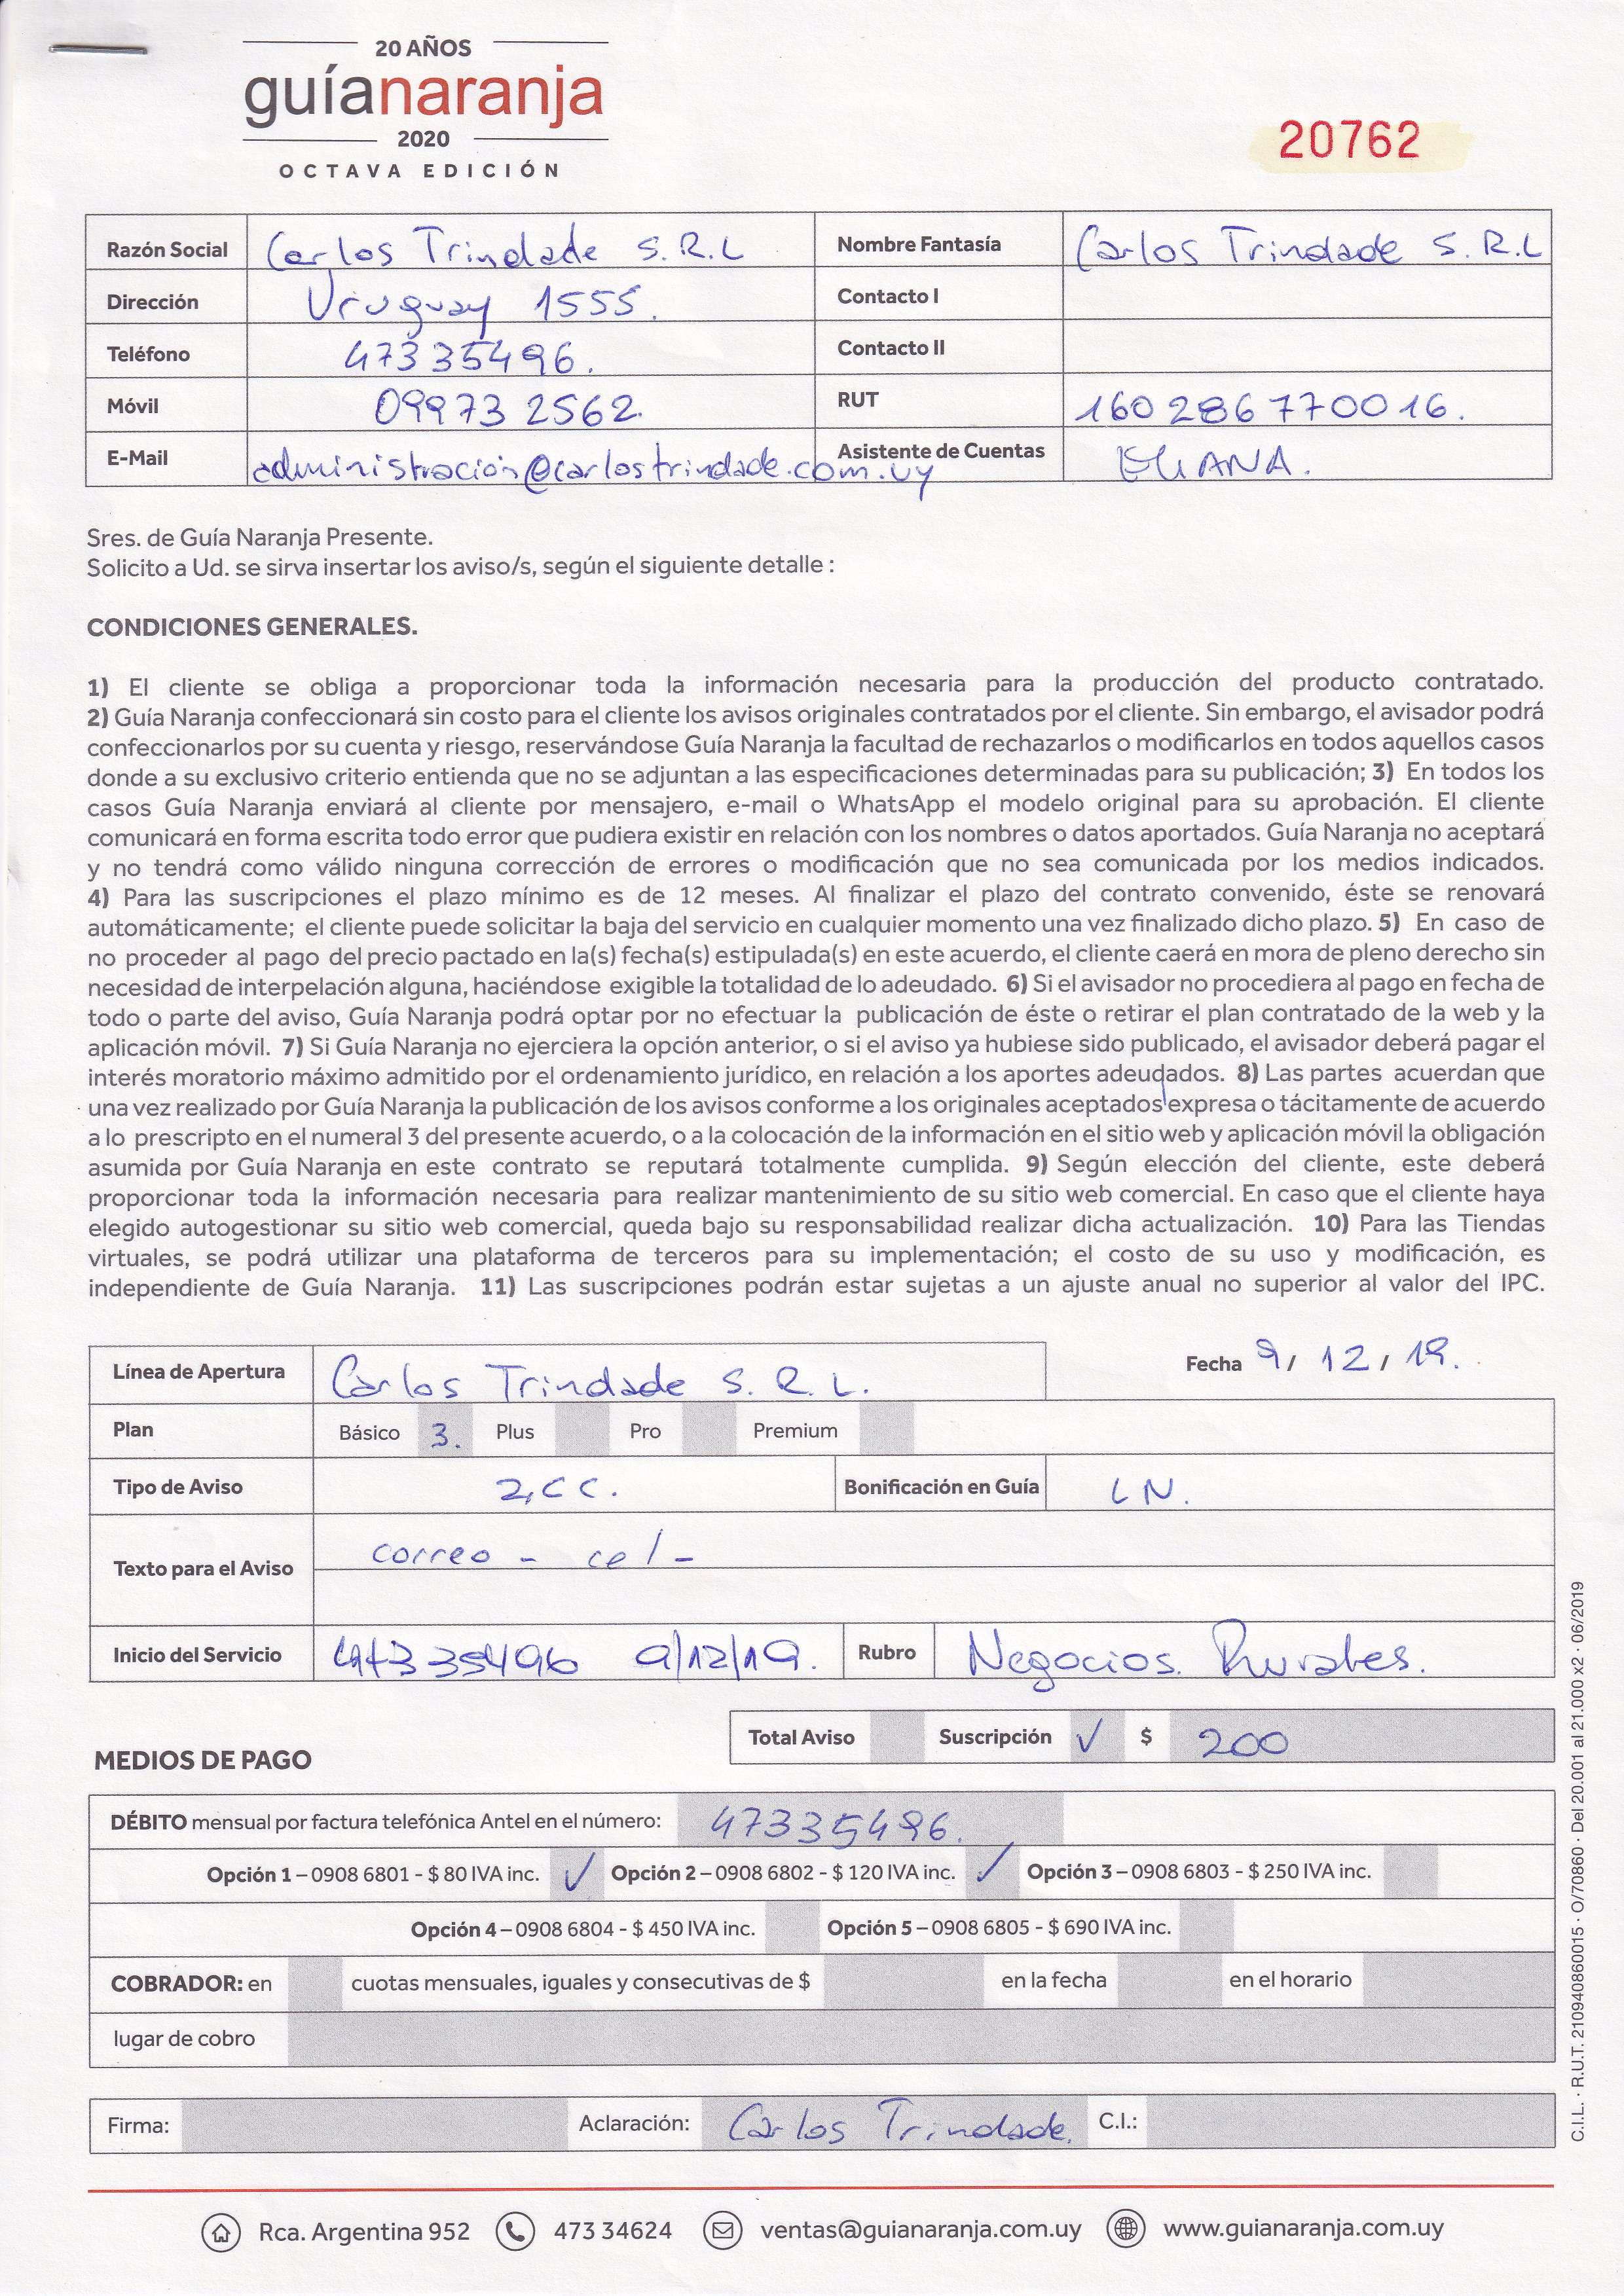 20 AÑOS
guíanaranja
2020
OCTAVA EDICIÓN
20762
Razón Social Carlos Trindade S.R.L Nombre Fantasía Carlos Trindade S.R.L
Dirección Uruguay 1555. Contacto I
Teléfono 47335496. Contacto II
Móvil 099732562. RUT 160286770016.
E-Mail administración@carlostrindade.com.uy Asistente de Cuentas ELIANA.
Sres. de Guía Naranja Presente.
Solicito a Ud. se sirva insertar los aviso/s, según el siguiente detalle :
CONDICIONES GENERALES.
1) El cliente se obliga a proporcionar toda la información necesaria para la producción del producto contratado.
2) Guía Naranja confeccionará sin costo para el cliente los avisos originales contratados por el cliente. Sin embargo, el avisador podrá
confeccionarlos por su cuenta y riesgo, reservándose Guía Naranja la facultad de rechazarlos o modificarlos en todos aquellos casos
donde a su exclusivo criterio entienda que no se adjuntan a las especificaciones determinadas para su publicación; 3) En todos los
casos Guía Naranja enviará al cliente por mensajero, e-mail o WhatsApp el modelo original para su aprobación. El cliente
comunicará en forma escrita todo error que pudiera existir en relación con los nombres o datos aportados. Guía Naranja no aceptará
y no tendrá como válido ninguna corrección de errores o modificación que no sea comunicada por los medios indicados.
4) Para las suscripciones el plazo mínimo es de 12 meses. Al finalizar el plazo del contrato convenido, éste se renovará
automáticamente; el cliente puede solicitar la baja del servicio en cualquier momento una vez finalizado dicho plazo. 5) En caso de
no proceder al pago del precio pactado en la(s) fecha(s) estipulada(s) en este acuerdo, el cliente caerá en mora de pleno derecho sin
necesidad de interpelación alguna, haciéndose exigible la totalidad de lo adeudado. 6) Si el avisador no procediera al pago en fecha de
todo o parte del aviso, Guía Naranja podrá optar por no efectuar la publicación de éste o retirar el plan contratado de la web y la
aplicación móvil. 7) Si Guía Naranja no ejerciera la opción anterior, o si el aviso ya hubiese sido publicado, el avisador deberá pagar el
interés moratorio máximo admitido por el ordenamiento jurídico, en relación a los aportes adeudados. 8) Las partes acuerdan que
una vez realizado por Guía Naranja la publicación de los avisos conforme a los originales aceptados expresa o tácitamente de acuerdo
a lo prescripto en el numeral 3 del presente acuerdo, o a la colocación de la información en el sitio web y aplicación móvil la obligación
asumida por Guía Naranja en este contrato se reputará totalmente cumplida. 9) Según elección del cliente, este deberá
proporcionar toda la información necesaria para realizar mantenimiento de su sitio web comercial. En caso que el cliente haya
elegido autogestionar su sitio web comercial, queda bajo su responsabilidad realizar dicha actualización. 10) Para las Tiendas
virtuales, se podrá utilizar una plataforma de terceros para su implementación; el costo de su uso y modificación, es
independiente de Guía Naranja. 11) Las suscripciones podrán estar sujetas a un ajuste anual no superior al valor del IPC.
Línea de Apertura Carlos Trindade S. R. L. Fecha 9/ 12 / 19.
Plan Básico 3. Plus Pro Premium
Tipo de Aviso 2,CC. Bonificación en Guía LN.
Texto para el Aviso correo - cel -
Inicio del Servicio 47335496 9/12/19. Rubro Negocios Rurales.
Total Aviso Suscripción ✓ $ 200
MEDIOS DE PAGO
DÉBITO mensual por factura telefónica Antel en el número: 47335496.
Opción 1 – 0908 6801 - $ 80 IVA inc. ✓ Opción 2 – 0908 6802 - $ 120 IVA inc. ✓ Opción 3 – 0908 6803 - $ 250 IVA inc.
Opción 4 – 0908 6804 - $ 450 IVA inc. Opción 5 – 0908 6805 - $ 690 IVA inc.
COBRADOR: en cuotas mensuales, iguales y consecutivas de $ en la fecha en el horario
lugar de cobro
Firma: Aclaración: Carlos Trindade. C.I.:
Rca. Argentina 952 473 34624 ventas@guianaranja.com.uy www.guianaranja.com.uy
C.I.L. · R.U.T. 210940860015 · O/70860 · Del 20.001 al 21.000 x2 · 06/2019